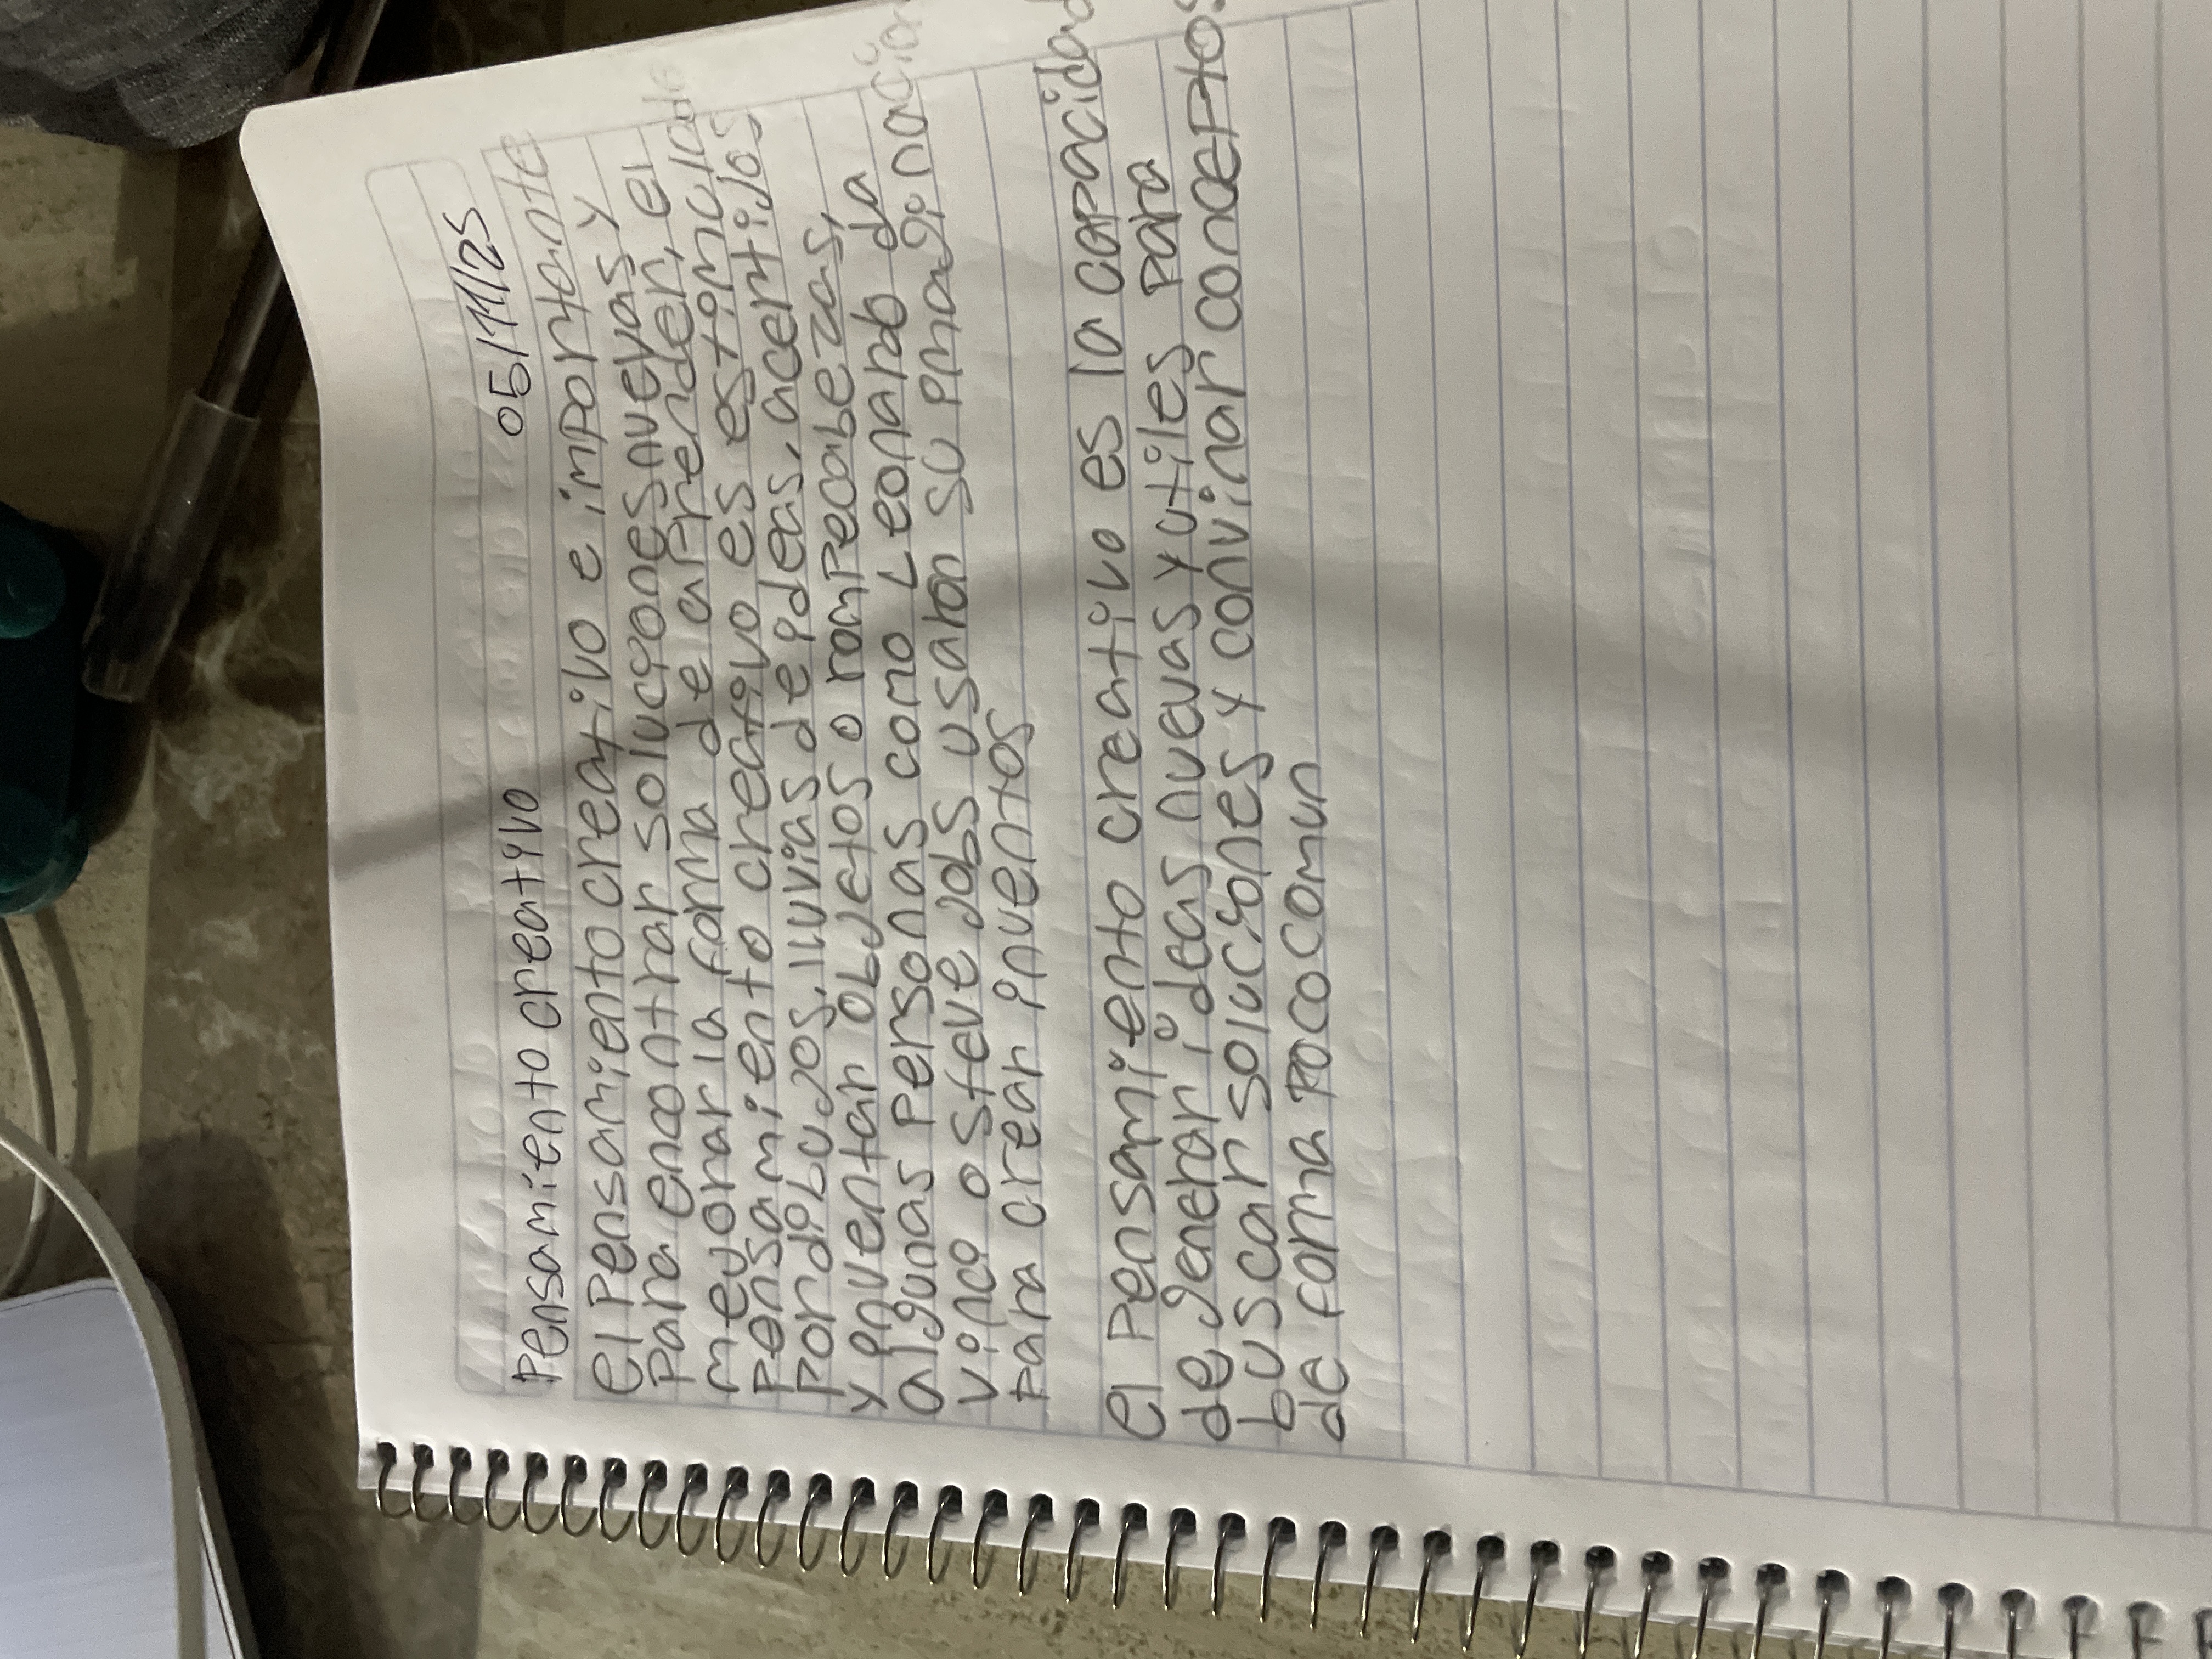 Pensamiento creativo 05/11/25
el pensamiento creativo e importante
para encontrar soluciones nuevas y
mejorar la forma de aprender, el
pensamiento creativo es estimulado
por dibujos, lluvias de ideas, acertijos
y inventar objetos o rompecabezas,
algunas personas como Leonardo da
vinci o steve jobs usaron su imaginación
para crear inventos
el pensamiento creativo es la capacidad
de generar ideas nuevas y utiles para
buscar soluciones y convinar conceptos
de forma poco comun